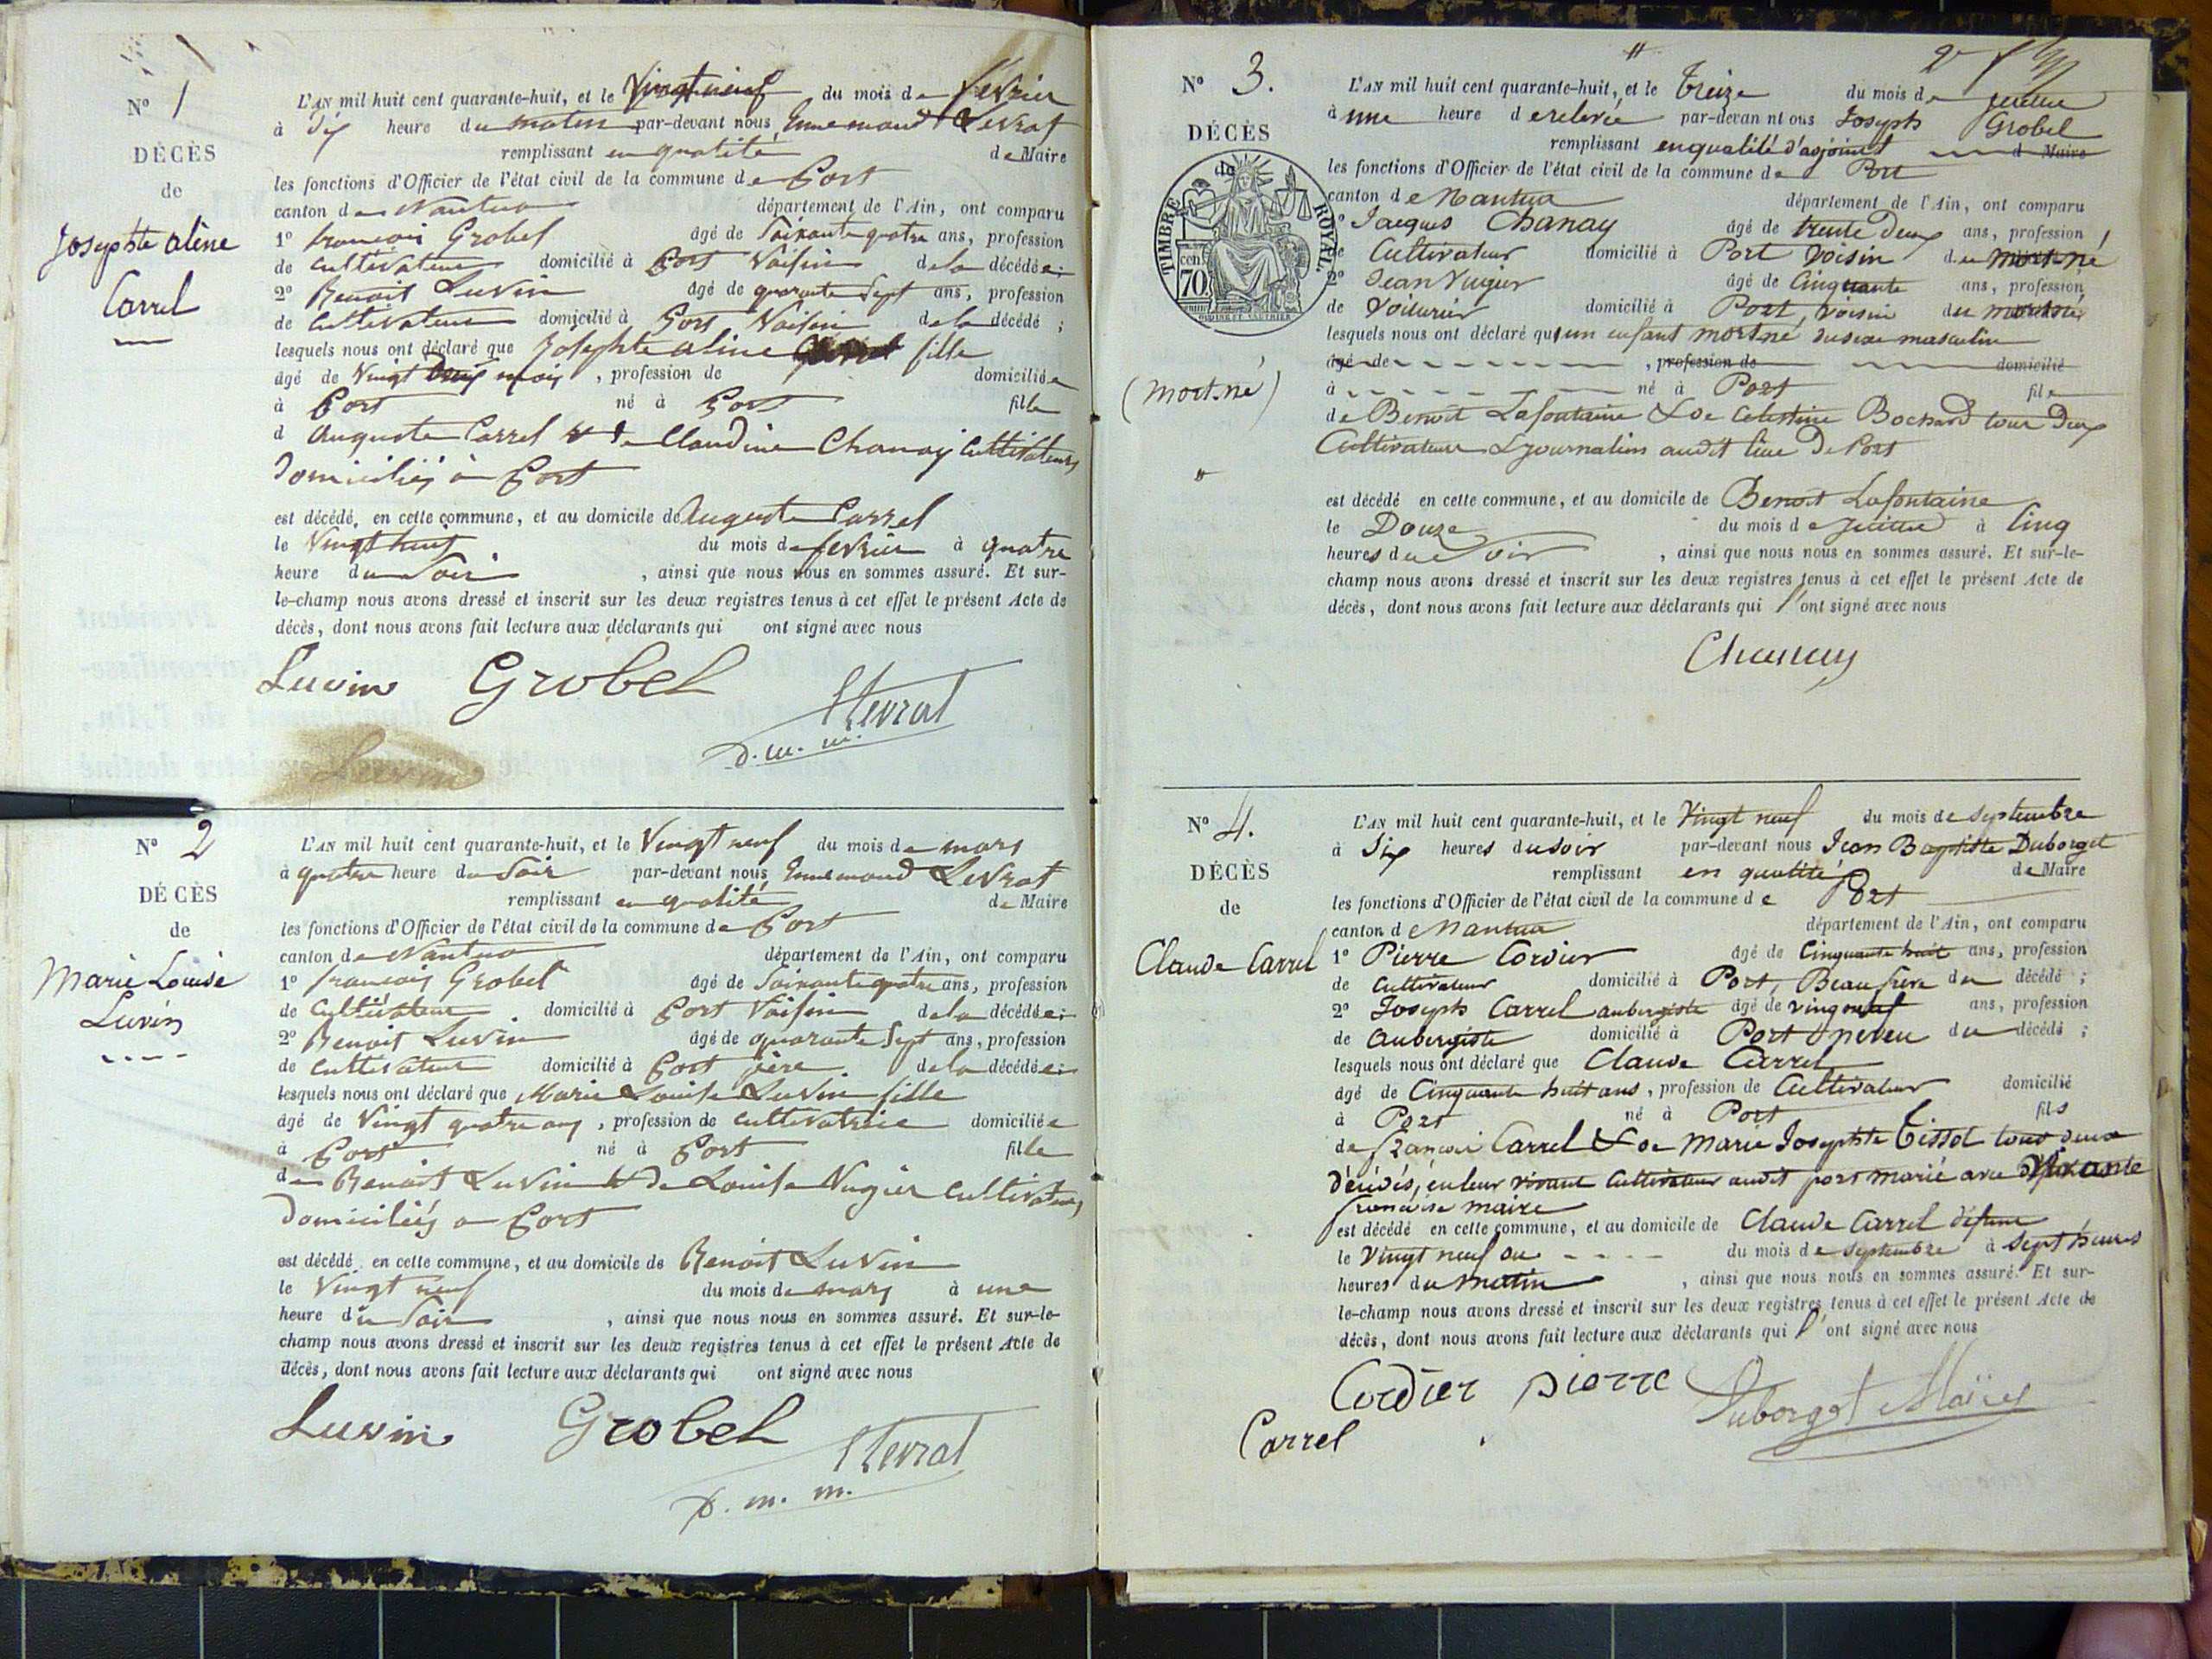 N° 1
DÉCÈS
de
Josephte aline
Carrel
L'AN mil huit cent quarante-huit, et le Vingt neuf du mois de fevrier
à dix heure du matin par-devant nous Ennemond Levrat
remplissant en qualité de Maire
les fonctions d'Officier de l'état civil de la commune de Port
canton de Nantua département de l'Ain, ont comparu
1° francois Grobel âgé de Soixante quatre ans, profession
de cultivateur domicilié à Port Voisin de la décédée;
2° Benoit Luvin âgé de quarante Sept ans, profession
de Cultivateur domicilié à Port Voisin de la décédé;
lesquels nous ont déclaré que Josephte aline fille
âgé de Vingt mois, profession de domiciliée
à Port né à Port fille
d Auguste Carrel & de Claudine Chanay Cultivateurs
Domiciliés à Port
est décédé, en cette commune, et au domicile de Auguste Carrel
le Vingt huit du mois de fevrier à quatre
heure du Soir, ainsi que nous nous en sommes assuré. Et sur-
le-champ nous avons dressé et inscrit sur les deux registres tenus à cet effet le présent Acte de
décès, dont nous avons fait lecture aux déclarants qui ont signé avec nous
Luvin Grobel
Levrat
D. m. m.
Luvin
N° 2
DÉCÈS
de
Marie Louise
Luvin
L'AN mil huit cent quarante-huit, et le Vingt neuf du mois de mars
à quatre heure du Soir par-devant nous Ennemond Levrat
remplissant en qualité de Maire
les fonctions d'Officier de l'état civil de la commune de Port
canton de Nantua département de l'Ain, ont comparu
1° francois Grobel âgé de Soixante quatre ans, profession
de Cultivateur domicilié à Port Voisin de la décédée;
2° Benoit Luvin âgé de quarante Sept ans, profession
de Cultivateur domicilié à Port père de la décédée;
lesquels nous ont déclaré que Marie Louise Luvin fille
âgé de Vingt quatre ans, profession de cultivatrice domiciliée
à Port né à Port fille
de Benoit Luvin & de Louise Vugier Cultivateurs
Domiciliés a Port
est décédé en cette commune, et au domicile de Benoit Luvin
le Vingt neuf du mois de mars à une
heure du Soir, ainsi que nous nous en sommes assuré. Et sur-le-
champ nous avons dressé et inscrit sur les deux registres tenus à cet effet le présent Acte de
décès, dont nous avons fait lecture aux déclarants qui ont signé avec nous
Luvin Grobel
Levrat
D. m. m.
N° 3.
DÉCÈS
de
TIMBRE ROYAL
70 cent
(mort-né)
L'AN mil huit cent quarante-huit, et le treize du mois de juillet
à une heure de relevée par-devan nt ous Joseph Grobel
remplissant en qualité d'adjoint d Maire
les fonctions d'Officier de l'état civil de la commune de Port
canton de Nantua département de l'Ain, ont comparu
1° Jacques Chanay âgé de trente deux ans, profession
de Cultivateur domicilié à Port voisin du mort-né
2° Jean Vugier âgé de Cinquante ans, profession
de Voiturier domicilié à Port, voisin du mort-né
lesquels nous ont déclaré qu'un enfant mort-né du sexe masculin
âgé de , profession de domicilié
à né à Port fils
de Benoit Lafontaine & de Celestine Bochard tous deux
Cultivateurs & journaliers audit lieu De Port
est décédé en cette commune, et au domicile de Benoit Lafontaine
le Douze du mois de juillet à Cinq
heures du Soir, ainsi que nous nous en sommes assuré. Et sur-le-
champ nous avons dressé et inscrit sur les deux registres tenus à cet effet le présent Acte de
décès, dont nous avons fait lecture aux déclarants qui l'ont signé avec nous
Chanay
N° 4.
DÉCÈS
de
Claude Carrel
L'AN mil huit cent quarante-huit, et le Vingt neuf du mois de septembre
à Six heures du soir par-devant nous Jean Baptiste Duborget
remplissant en qualité de Maire
les fonctions d'Officier de l'état civil de la commune de Port
canton de Nantua département de l'Ain, ont comparu
1° Pierre Cordier âgé de Cinquante huit ans, profession
de Cultivateur domicilié à Port, Beau frere du décédé;
2° Joseph Carrel aubergiste âgé de vingt neuf ans, profession
de Aubergiste domicilié à Port neveu du décédé;
lesquels nous ont déclaré que Claude Carrel
âgé de Cinquante huit ans, profession de Cultivateur domicilié
à Port né à Port fils
de francois Carrel & de Marie Josephte Tissot tous deux
décédés, en leur vivant Cultivateurs audit port marié avec vivante
francoise maire
est décédé en cette commune, et au domicile de Claude Carrel défunt
le Vingt neuf du du mois de septembre à sept heures
heures du matin, ainsi que nous nous en sommes assuré. Et sur-
le-champ nous avons dressé et inscrit sur les deux registres tenus à cet effet le présent Acte de
décès, dont nous avons fait lecture aux déclarants qui l'ont signé avec nous
Cordier pierre Duborget Maire
Carrel